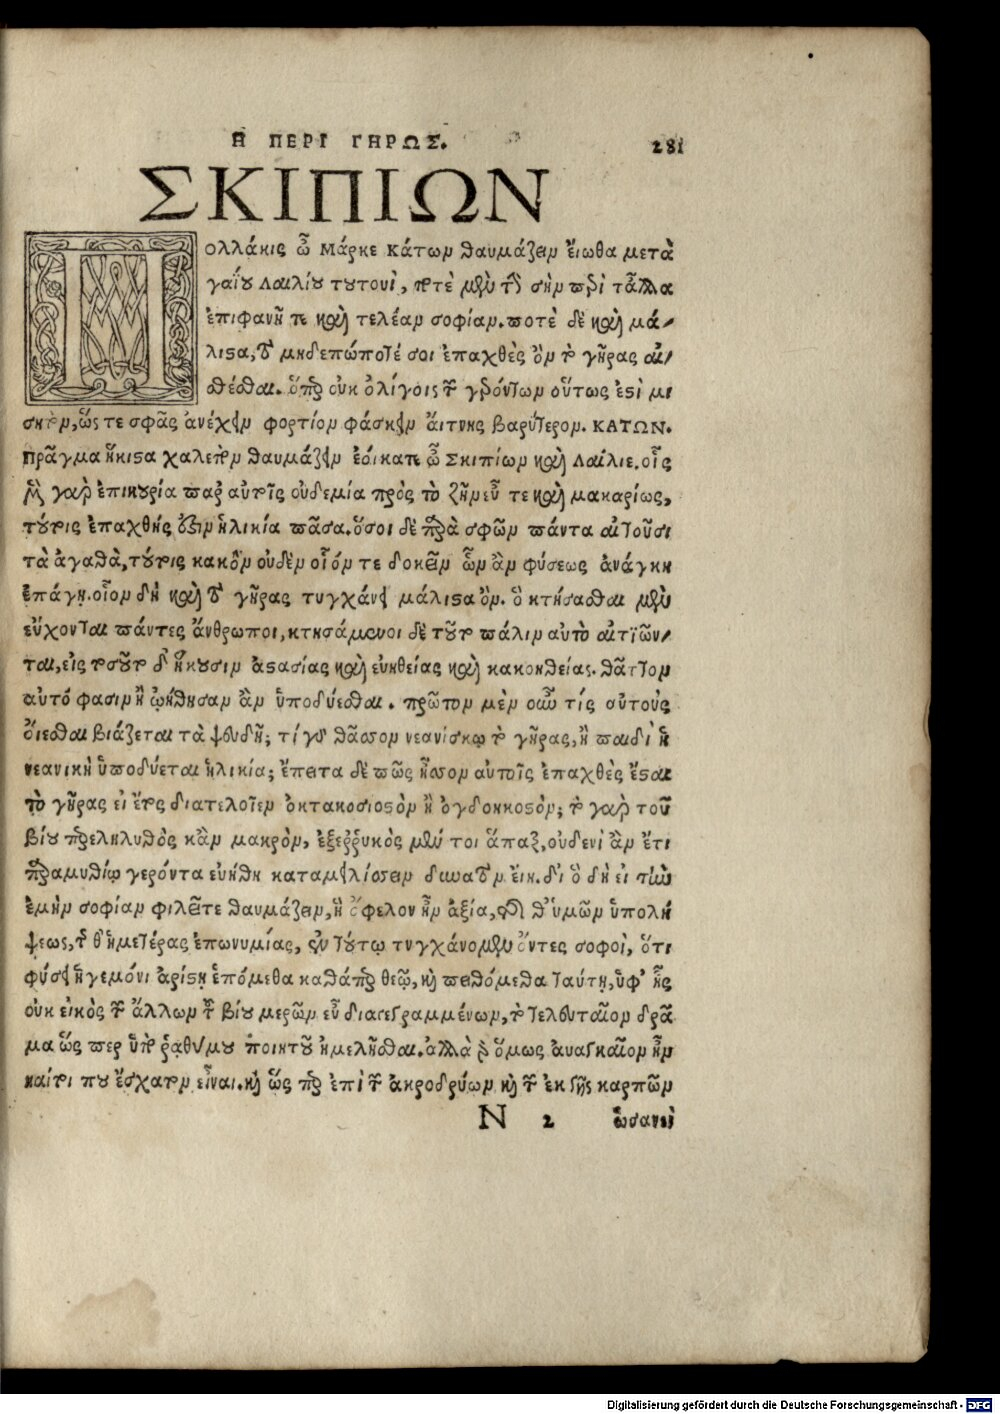 Η ΠΕΡΙ ΓΗΡΩΣ. 281
ΣΚΙΠΙΩΝ
Πολλάκις ὦ Μάρκε Κάτων θαυμάζειν ἔιωθα μετὰ
γαΐου Λαιλίου τουτουὶ, ποτὲ μὲν τὴν σὴν περὶ τἄλλα
ἐπιφανῆ τε καὶ τελέαν σοφίαν. ποτὲ δὲ καὶ μά-
λιστα, τὸ μηδεπώποτέ σοι ἐπαχθὲς ὂν τὸ γῆρας αἰ-
σθέσθαι. ὅπερ οὐκ ὀλίγοις τῶν γερόντων οὕτως ἐστὶ μι
σητὸν, ὥς τε σφᾶς ἀνέχειν φορτίον φάσκειν ἄιτνης βαρύτερον. ΚΑΤΩΝ.
Πρᾶγμα ἥκιστα χαλεπὸν θαυμάζειν ἐοίκατε ὦ Σκιπίων καὶ Λαίλιε. οἷς
μὲν γὰρ ἐπικουρία παρ' αὐτοῖς οὐδεμία πρὸς τὸ ζῆν εὖ τε καὶ μακαρίως,
τούτοις ἐπαχθής ἐστιν ἡλικία πᾶσα. ὅσοι δὲ παρὰ σφῶν πάντα αἰτοῦσι
τὰ ἀγαθὰ, τούτοις κακὸν οὐδὲν οἷόν τε δοκεῖν ὧν ἂν φύσεως ἀνάγκη
ἐπάγῃ. οἷον δὴ καὶ τὸ γῆρας τυγχάνει μάλιστα ὄν. ὃ κτήσασθαι μὲν
εὔχονται πάντες ἄνθρωποι, κτησάμενοι δὲ τοῦτο πάλιν αὐτὸ αἰτιῶν-
ται, εἰς τοσοῦτον δ' ἥκουσιν ἀστασίας καὶ εὐηθείας καὶ κακοηθείας. θᾶττον
αὐτό φασιν ἢ ᾠήθησαν ἂν ὑποδύεσθαι. πρῶτον μὲν οὖν τίς αὐτοὺς
ὄιεσθαι βιάζεται τὰ ψευδῆ; τί γὰρ θᾶσσον νεανίσκῳ τὸ γῆρας, ἢ παιδὶ ἡ
νεανικὴ ὑποδύεται ἡλικία; ἔπειτα δὲ πῶς ἧσσον αὐτοῖς ἐπαχθὲς ἔσται
τὸ γῆρας εἰ ἔτος διατελοῖεν ὀκτακοσιοστὸν ἢ ὀγδοηκοστὸν; τὸ γὰρ τοῦ
βίου παρεληλυθὸς κἂν μακρὸν, ἐξερρυκὸς μέν τοι ἅπαξ, οὐδενὶ ἂν ἔτι
παραμυθίῳ γερόντα εὐήθη καταμειλίσσειν δυνατὸν ἔιη. δι ὃ δὴ εἰ τὴν
ἐμὴν σοφίαν φιλεῖτε θαυμάζειν, ἣ ὄφελον ἦν ἀξία, καὶ θ' ὑμῶν ὑπολή
ψεως, τῆς θ' ἡμετέρας ἐπωνυμίας, ἐν τούτῳ τυγχάνομεν ὄντες σοφοὶ, ὅτι
φύσει ἡγεμόνι ἀρίστῃ ἑπόμεθα καθάπερ θεῷ, καὶ πειθόμεθα ταύτῃ, ὑφ' ἧς
οὐκ εἰκὸς τῶν ἄλλων τῶν βίου μερῶν εὖ διαγεγραμμένων, τὸ τελευταῖον δρᾶ
μα ὥς περ ὑπὸ ῥαθύμου ποιητοῦ ἠμελῆσθαι. ἀλλὰ γὰρ ὅμως ἀναγκαῖον ἦν
καίτι που ἔσχατον εἶναι. καὶ ὥς περ ἐπὶ τῶν ἀκροδρύων καὶ τῶν ἐκ γῆς καρπῶν
N 2 ὡσανεὶ
Digitalisierung gefördert durch die Deutsche Forschungsgemeinschaft - DFG